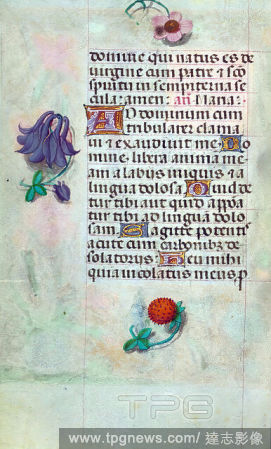 domine qui natus es de
virgine cum patre et sco
spiritu in sempiterna se
cula: amen: añ. Nana:
AD dominum cum
tribularer clama
ui et exaudiuit me Do
mine libera animā me
am a labijs iniquis et a
lingua dolosa. Quid de
tur tibi aut quid appoa
tur tibi ad linguā dolo
sam. Sagitte potentis
acute cum carbonibz de
solatorijs: Heu mihi
quia incolatus meus p
TPG
www.tpgnews.com/達志影像